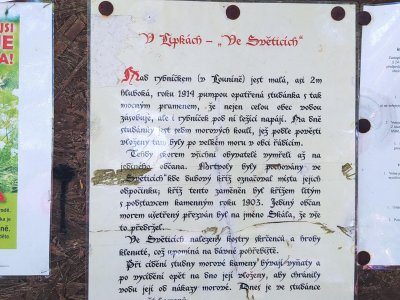 V Lipkách – „Ve Světicích“
Nad rybníčkem (v Louníně) jest malá, asi 2m
hluboká, roku 1914 pumpou opatřená studánka s tak
mocným pramenem, že nejen celou obec vodou
zásobuje, ale i rybníček pod ní ležící napájí. Na dně
studánky jest sedm morových koulí, jež podle pověsti
vloženy tam byly po velkém moru v obci řádícím.
Tehdy skorem všichni obyvatelé vymřeli až na
jediného občana. Mrtvoly byly pochovány ve
Světicích kde dubový kříž označoval místa jejich
odpočinku; kříž tento zaměněn byl křížem litým
s podstavcem kamenným roku 1903. Jediný občan
morem ušetřený přezván byl na jméno Skála, že vše
to přebyl.
Ve Světicích nalezeny kostry skrčenců a hroby
klenuté, což upomíná na dávné pohřebiště.
Při čištění studny morové kameny bývají vyňaty a
po vyčištění opět na dno její vloženy, aby chránily
vodu její od nákazy morové. Dnes je ve studánce